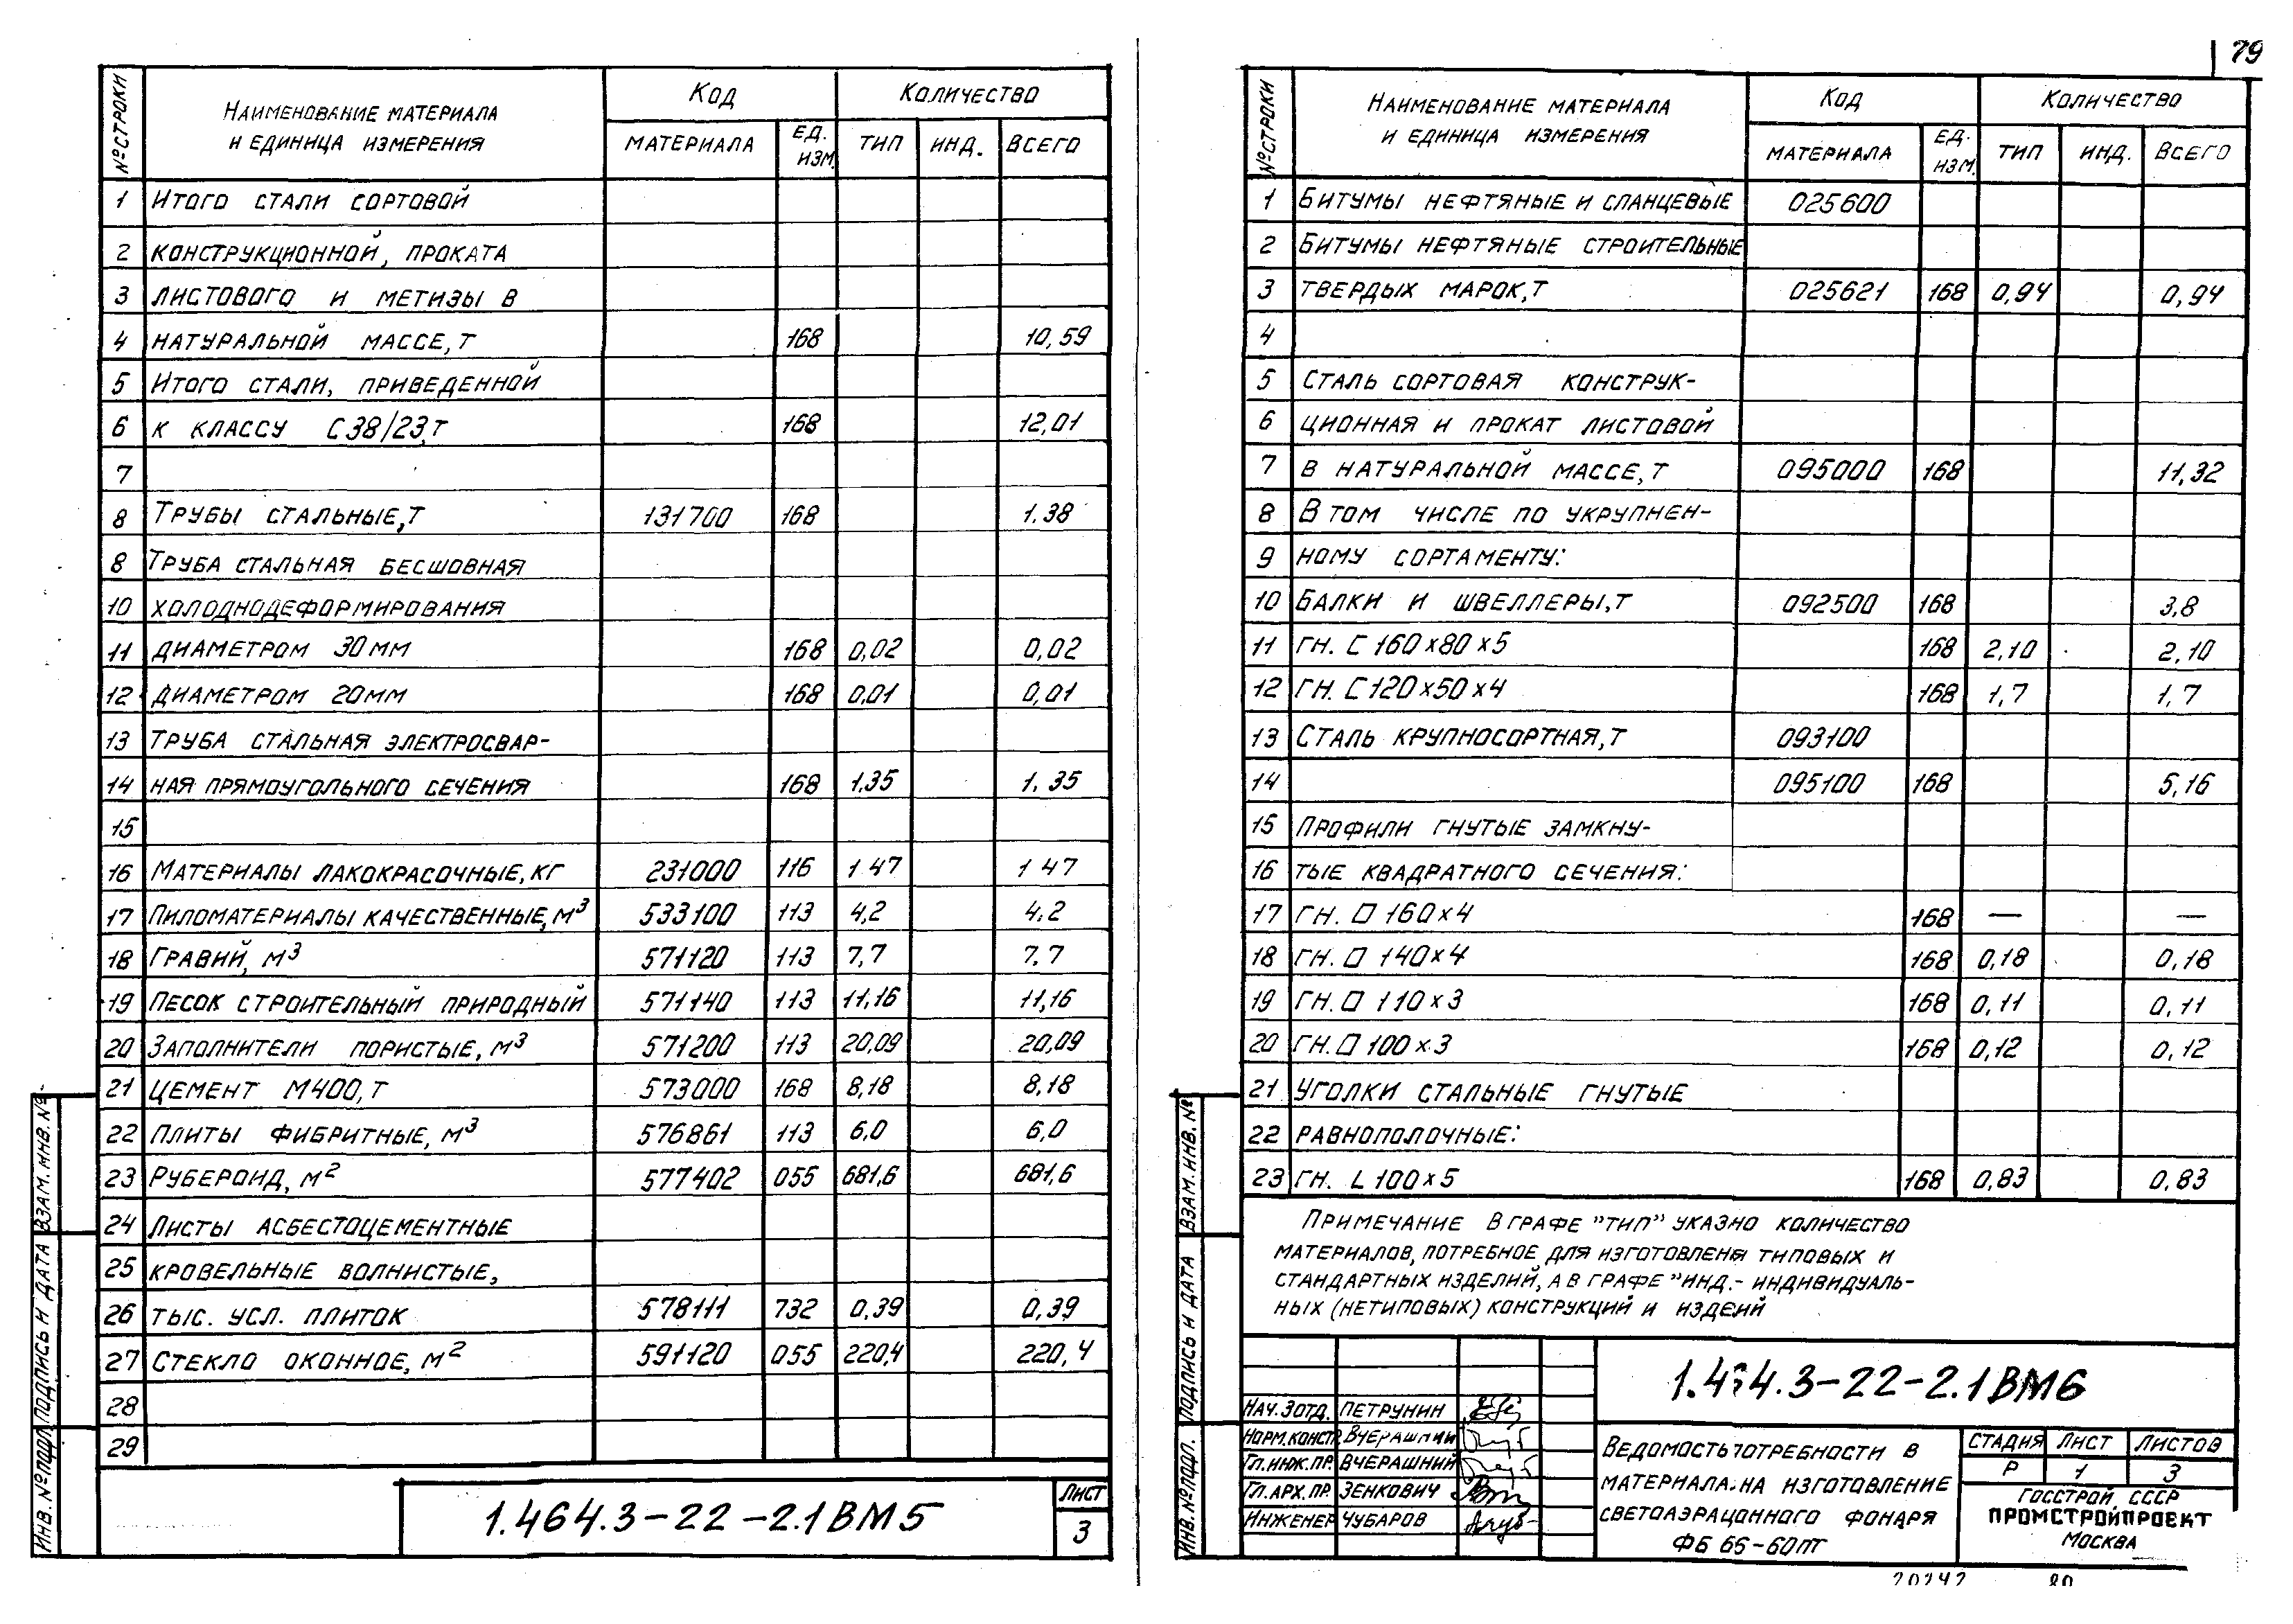 79
№ СТРОКИ | НАИМЕНОВАНИЕ МАТЕРИАЛА И ЕДИНИЦА ИЗМЕРЕНИЯ | КОД | КОЛИЧЕСТВО
МАТЕРИАЛА | ЕД. ИЗМ. | ТИП | ИНД. | ВСЕГО
1 ИТОГО СТАЛИ СОРТОВОЙ
2 КОНСТРУКЦИОННОЙ, ПРОКАТА
3 ЛИСТОВОГО И МЕТИЗЫ В
4 НАТУРАЛЬНОЙ МАССЕ, Т 168 10,59
5 ИТОГО СТАЛИ, ПРИВЕДЕННОЙ
6 К КЛАССУ С38/23, Т 168 12,01
7
8 ТРУБЫ СТАЛЬНЫЕ, Т 131700 168 1.38
8 ТРУБА СТАЛЬНАЯ БЕСШОВНАЯ
10 ХОЛОДНОДЕФОРМИРОВАНИЯ
11 ДИАМЕТРОМ 30 ММ 168 0,02 0,02
12 ДИАМЕТРОМ 20 ММ 168 0,01 0,01
13 ТРУБА СТАЛЬНАЯ ЭЛЕКТРОСВАР-
14 НАЯ ПРЯМОУГОЛЬНОГО СЕЧЕНИЯ 168 1,35 1,35
15
16 МАТЕРИАЛЫ ЛАКОКРАСОЧНЫЕ, КГ 231000 116 147 147
17 ПИЛОМАТЕРИАЛЫ КАЧЕСТВЕННЫЕ, М³ 533100 113 4,2 4,2
18 ГРАВИЙ, М³ 571120 113 7,7 7,7
19 ПЕСОК СТРОИТЕЛЬНЫЙ ПРИРОДНЫЙ 571140 113 11,16 11,16
20 ЗАПОЛНИТЕЛИ ПОРИСТЫЕ, М³ 571200 113 20,09 20,09
21 ЦЕМЕНТ М400, Т 573000 168 8,18 8,18
22 ПЛИТЫ ФИБРИТНЫЕ, М³ 576861 113 6,0 6,0
23 РУБЕРОИД, М² 577402 055 681,6 681,6
24 ЛИСТЫ АСБЕСТОЦЕМЕНТНЫЕ
25 КРОВЕЛЬНЫЕ ВОЛНИСТЫЕ,
26 ТЫС. УСЛ. ПЛИТОК 578111 732 0,39 0,39
27 СТЕКЛО ОКОННОЕ, М² 591120 055 220,4 220,4
28
29
1.464.3-22-2.1 ВМ5
ЛИСТ
3
ВЗАМ. ИНВ. №
ПОДПИСЬ И ДАТА
ИНВ. № ПОДЛ.
№ СТРОКИ | НАИМЕНОВАНИЕ МАТЕРИАЛА И ЕДИНИЦА ИЗМЕРЕНИЯ | КОД | КОЛИЧЕСТВО
МАТЕРИАЛА | ЕД. ИЗМ. | ТИП | ИНД. | ВСЕГО
1 БИТУМЫ НЕФТЯНЫЕ И СЛАНЦЕВЫЕ 025600
2 БИТУМЫ НЕФТЯНЫЕ СТРОИТЕЛЬНЫЕ
3 ТВЕРДЫХ МАРОК, Т 025621 168 0,94 0,94
4
5 СТАЛЬ СОРТОВАЯ КОНСТРУК-
6 ЦИОННАЯ И ПРОКАТ ЛИСТОВОЙ
7 В НАТУРАЛЬНОЙ МАССЕ, Т 095000 168 11,32
8 В ТОМ ЧИСЛЕ ПО УКРУПНЕН-
9 НОМУ СОРТАМЕНТУ:
10 БАЛКИ И ШВЕЛЛЕРЫ, Т 092500 168 3,8
11 ГН. [ 160×80×5 168 2,10 2,10
12 ГН. [ 120×50×4 168 1,7 1,7
13 СТАЛЬ КРУПНОСОРТНАЯ, Т 093100
14 095100 168 5,16
15 ПРОФИЛИ ГНУТЫЕ ЗАМКНУ-
16 ТЫЕ КВАДРАТНОГО СЕЧЕНИЯ:
17 ГН. □ 160×4 168 — —
18 ГН. □ 140×4 168 0,18 0,18
19 ГН. □ 110×3 168 0,11 0,11
20 ГН. □ 100×3 168 0,12 0,12
21 УГОЛКИ СТАЛЬНЫЕ ГНУТЫЕ
22 РАВНОПОЛОЧНЫЕ:
23 ГН. L 100×5 168 0,83 0,83
ПРИМЕЧАНИЕ В ГРАФЕ "ТИП" УКАЗНО КОЛИЧЕСТВО
МАТЕРИАЛОВ, ПОТРЕБНОЕ ДЛЯ ИЗГОТОВЛЕНЯ ТИПОВЫХ И
СТАНДАРТНЫХ ИЗДЕЛИЙ, А В ГРАФЕ "ИНД.- ИНДИВИДУАЛЬ-
НЫХ (НЕТИПОВЫХ) КОНСТРУКЦИЙ И ИЗДЕИЙ
НАЧ. ЗОТД. ПЕТРУНИН
НОРМ. КОНСТР. ВЧЕРАШНИЙ
ГЛ. ИНЖ. ПР. ВЧЕРАШНИЙ
ГЛ. АРХ. ПР. ЗЕНКОВИЧ
ИНЖЕНЕР ЧУБАРОВ
1.464.3-22-2.1 ВМ6
ВЕДОМОСТЬ ПОТРЕБНОСТИ В
МАТЕРИАЛА: НА ИЗГОТОВЛЕНИЕ
СВЕТОАЭРАЦОННОГО ФОНАРЯ
ФБ 66-60ПТ
СТАДИЯ ЛИСТ ЛИСТОВ
Р 1 3
ГОССТРОЙ СССР
ПРОМСТРОЙПРОЕКТ
МОСКВА
ВЗАМ. ИНВ. №
ПОДПИСЬ И ДАТА
ИНВ. № ПОДЛ.
20242 80